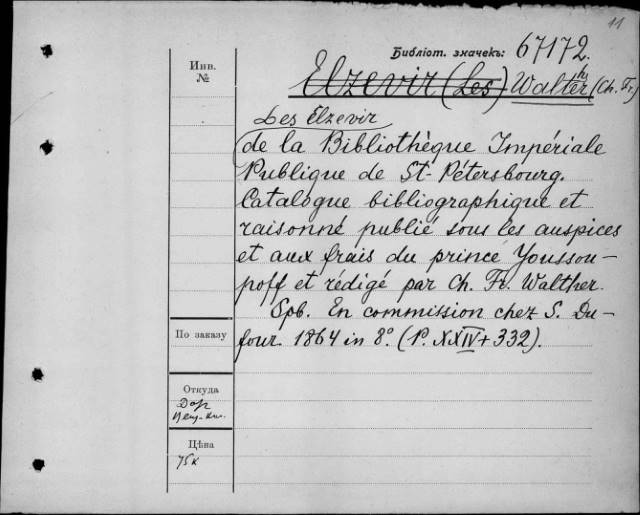 11
Библіот. значекъ: 67172.
Инв.
№
Elzevir (Les) Walther (Ch. Fr.)
Les Elzevir
de la Bibliothèque Impériale
Publique de St-Pétersbourg.
Catalogue bibliographique et
raisonné publié sous les auspices
et aux frais du prince Youssou-
poff et rédigé par Ch. Fr. Walther.
Spb. En commission chez S. Du-
four. 1864 in 8°. (P. XXIV + 332).
По заказу
Откуда
Дар
Цѣна
75к